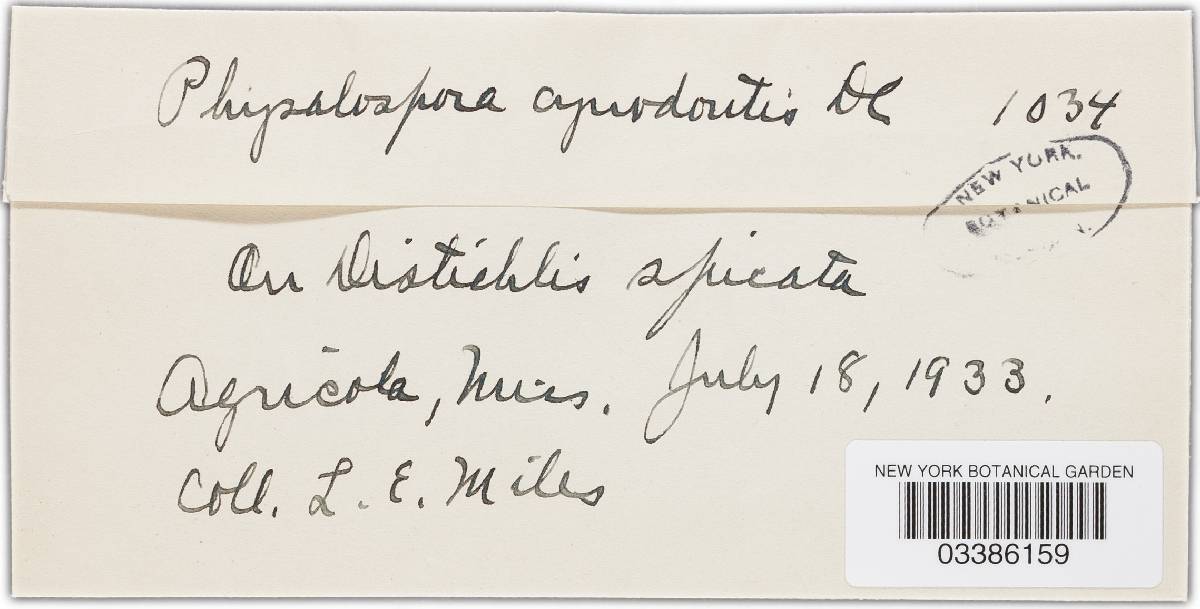 Physalospora cynodontis DC 1034
NEW YORK
BOTANICAL
On Distichlis spicata
Agricola, Miss. July 18, 1933.
Coll. L. E. Miles
NEW YORK BOTANICAL GARDEN
03386159